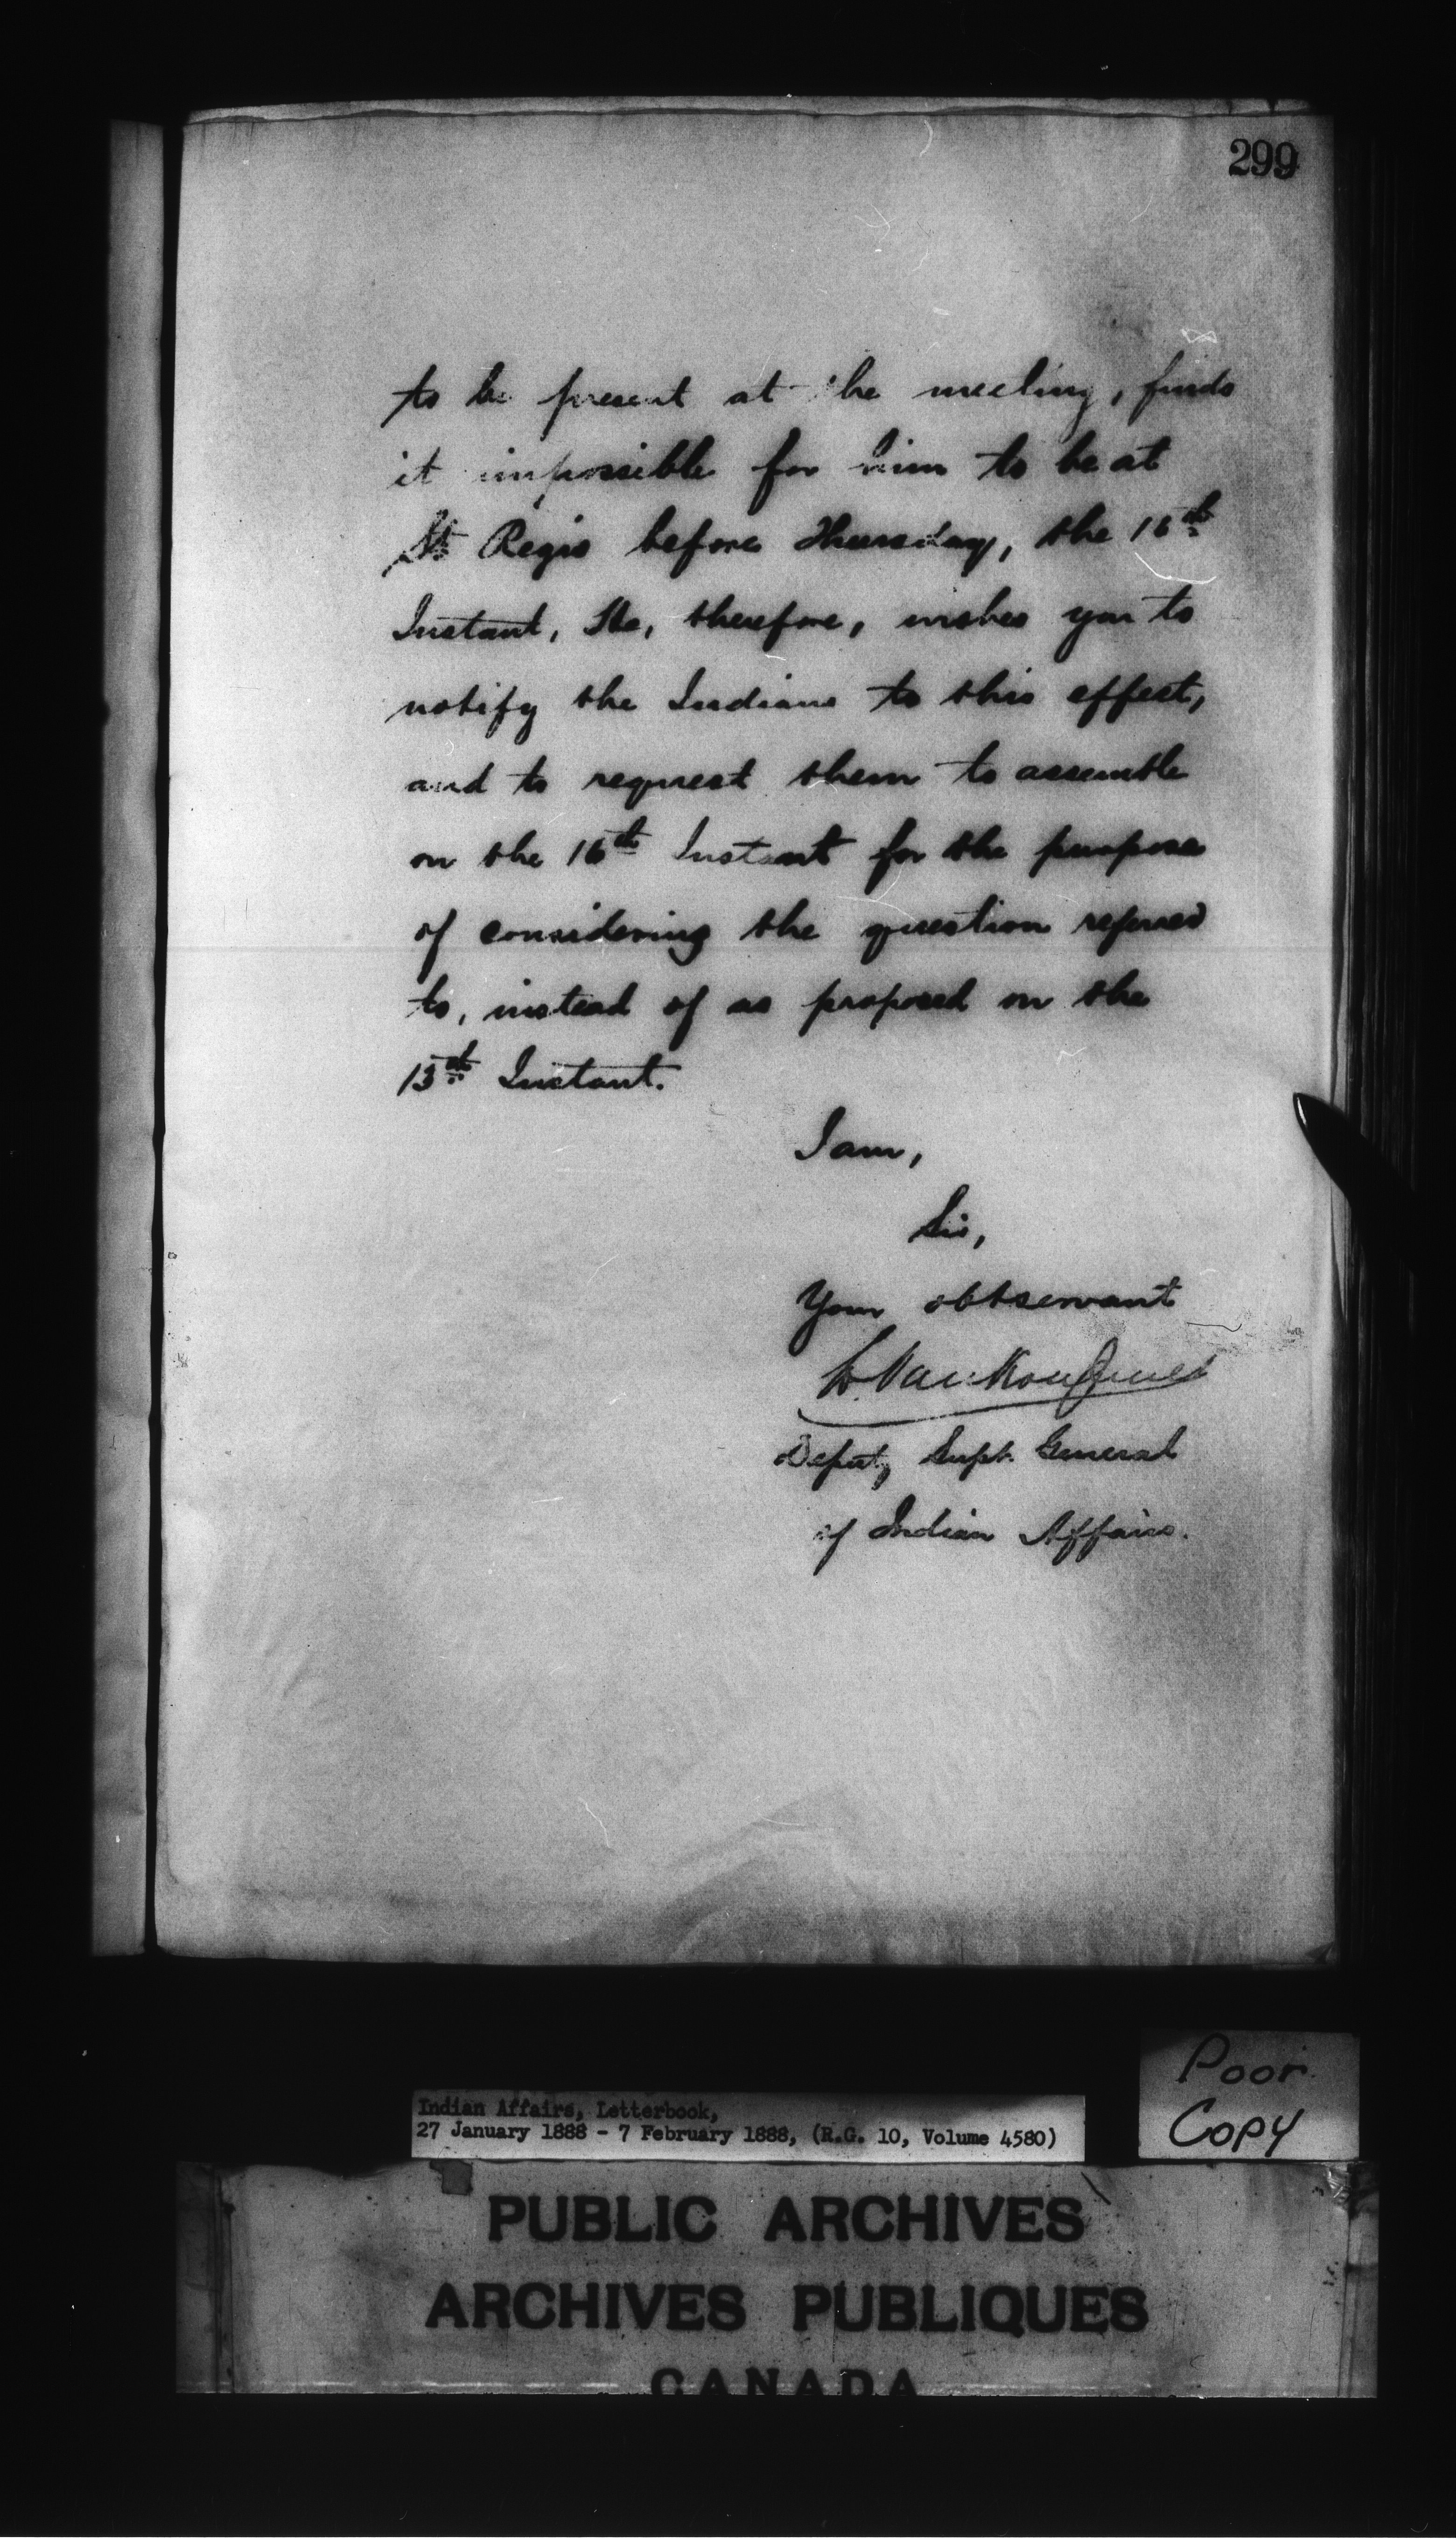 299
to be present at the meeting, finds
it impossible for him to be at
St Regis before Thursday, the 16th
Instant, He, therefore, wishes you to
notify the Indians to this effect,
and to request them to assemble
on the 16th Instant for the purpose
of considering the question referred
to, instead of as proposed on the
13th Instant.
I am,
Sir,
Your obt servant
L. VanKoughnet
Deputy Supt. General
of Indian Affairs.
Poor
Copy
Indian Affairs, Letterbook,
27 January 1888 - 7 February 1888, (R.G. 10, Volume 4580)
PUBLIC ARCHIVES
ARCHIVES PUBLIQUES
CANADA